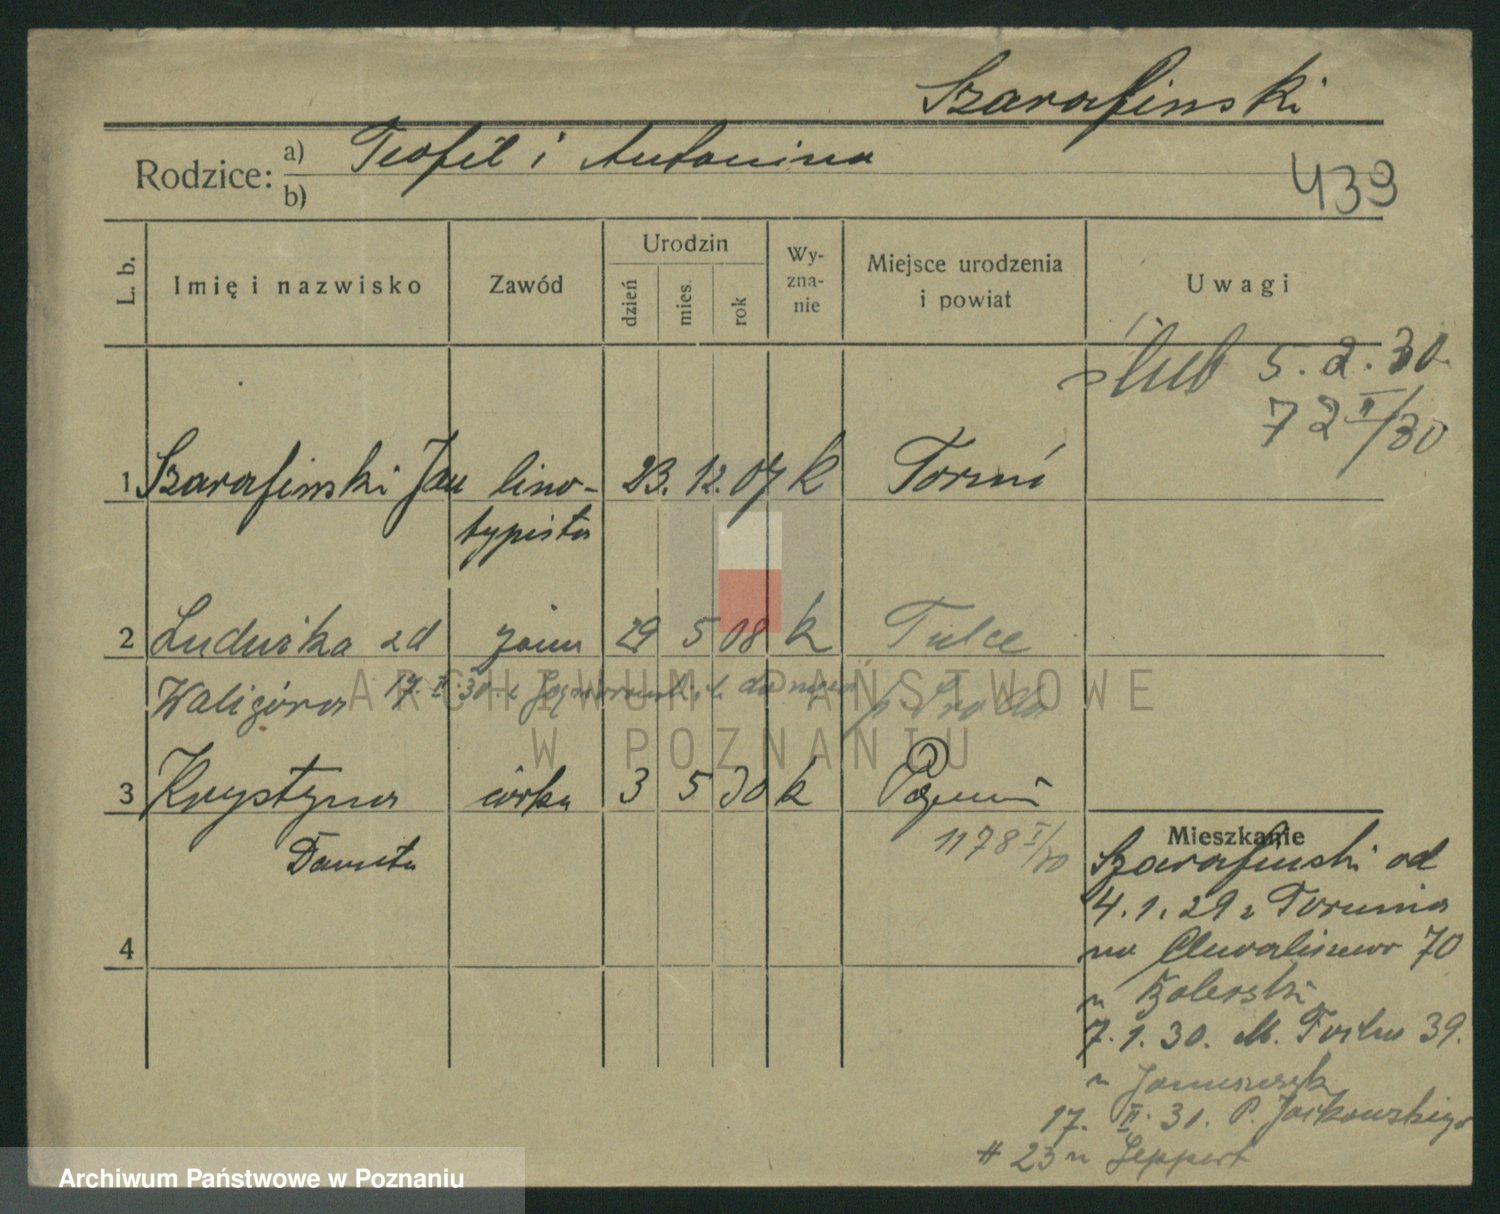 Szarafinski
Rodzice: a) Teofil i Antonina
b)
439
L. b.
Imię i nazwisko
Zawód
Urodzin
dzień
mies.
rok
Wy-
zna-
nie
Miejsce urodzenia
i powiat
Uwagi
ślub 5.2.30
72 II/30
1 Szarafinski Jan lino- 23. 12. 07 k Toruń
typista
2 Ludwika zd żona 29 5 08 k Tulce
Waligóra 17. II. 30 z do męża p Środa
3 Krystyna córka 3 5 30 k Poznań
Danuta
1178 I/30
4
Mieszkanie
Szarafinski od
4.1.29 z Torunia
na Chwaliszewo 70
u
7.1.30. M. 39.
u Januszczyk
17. II. 31. P. Jackowskiego
# 23 u Geppert
ARCHIWUM PAŃSTWOWE
W POZNANIU
Archiwum Państwowe w Poznaniu